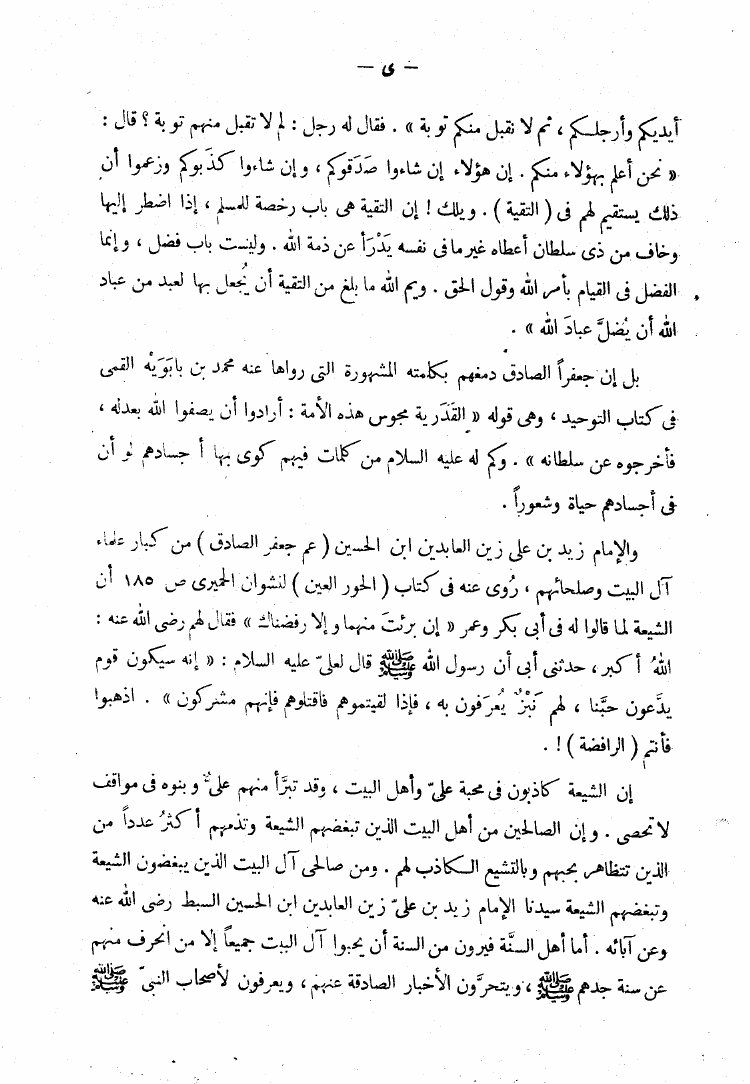 — ى —
أيديكم وأرجلكم ، ثم لا نقبل منكم توبة » . فقال له رجل : لم لا تقبل منهم توبة ؟ قال :
« نحن أعلم بهؤلاء منكم . إن هؤلاء إن شاءوا صَدَقوكم ، وإن شاءوا كذَبوكم وزعموا أن
ذلك يستقيم لهم فى ( التقية ) . ويلك ! إن التقية هى باب رخصة للمسلم ، إذا اضطر إليها
وخاف من ذى سلطان أعطاه غير ما فى نفسه يَدْرَأ عن ذمة الله . وليست باب فضل ، وإنما
الفضل فى القيام بأمر الله وقول الحق . ويم الله ما بلغ من التقية أن يُجعل بها لعبد من عباد
الله أن يُضلَّ عبادَ الله » .
بل إن جعفراً الصادق دمغهم بكلمته المشهورة التى رواها عنه محمد بن بابَوَيْه القمى
فى كتاب التوحيد ، وهى قوله « القَدَرية مجوس هذه الأمة : أرادوا أن يصفوا الله بعدله ،
فأخرجوه عن سلطانه » . وكم له عليه السلام من كلمات فيهم كوى بها أجسادهم لو أن
فى أجسادهم حياة وشعوراً .
والإمام زيد بن على زين العابدين ابن الحسين ( عم جعفر الصادق ) من كبار علماء
آل البيت وصلحائهم ، رُوى عنه فى كتاب ( الحور العين ) لنشوان الحميرى ص ١٨٥ أن
الشيعة لما قالوا له فى أبى بكر وعمر « إن برئتَ منهما وإلا رفضناك » فقال لهم رضى الله عنه :
اللهُ أكبر ، حدثنى أبى أن رسول الله ﷺ قال لعلىّ عليه السلام : « إنه سيكون قوم
يدَّعون حبَّنا ، لهم نَبْزٌ يُعرَفون به ، فإذا لقيتموهم فاقتلوهم فإنهم مشركون » . اذهبوا
فأنتم ( الرافضة ) ! .
إن الشيعة كاذبون فى محبة علىّ وأهل البيت ، وقد تبرَّأ منهم علىٌّ وبنوه فى مواقف
لا تحصى . وإن الصالحين من أهل البيت الذين تبغضهم الشيعة وتذمهم أكثرُ عدداً من
الذين تتظاهر بحبهم وبالتشيع الكاذب لهم . ومن صالحى آل البيت الذين يبغضون الشيعة
وتبغضهم الشيعة سيدنا الإمام زيد بن علىّ زين العابدين ابن الحسين السبط رضى الله عنه
وعن آبائه . أما أهل السنَّة فيرون من السنة أن يحبوا آل البيت جميعاً إلا من انحرف منهم
عن سنة جدهم ﷺ ، ويتحرَّون الأخبار الصادقة عنهم ، ويعرفون لأصحاب النبىّ ﷺ